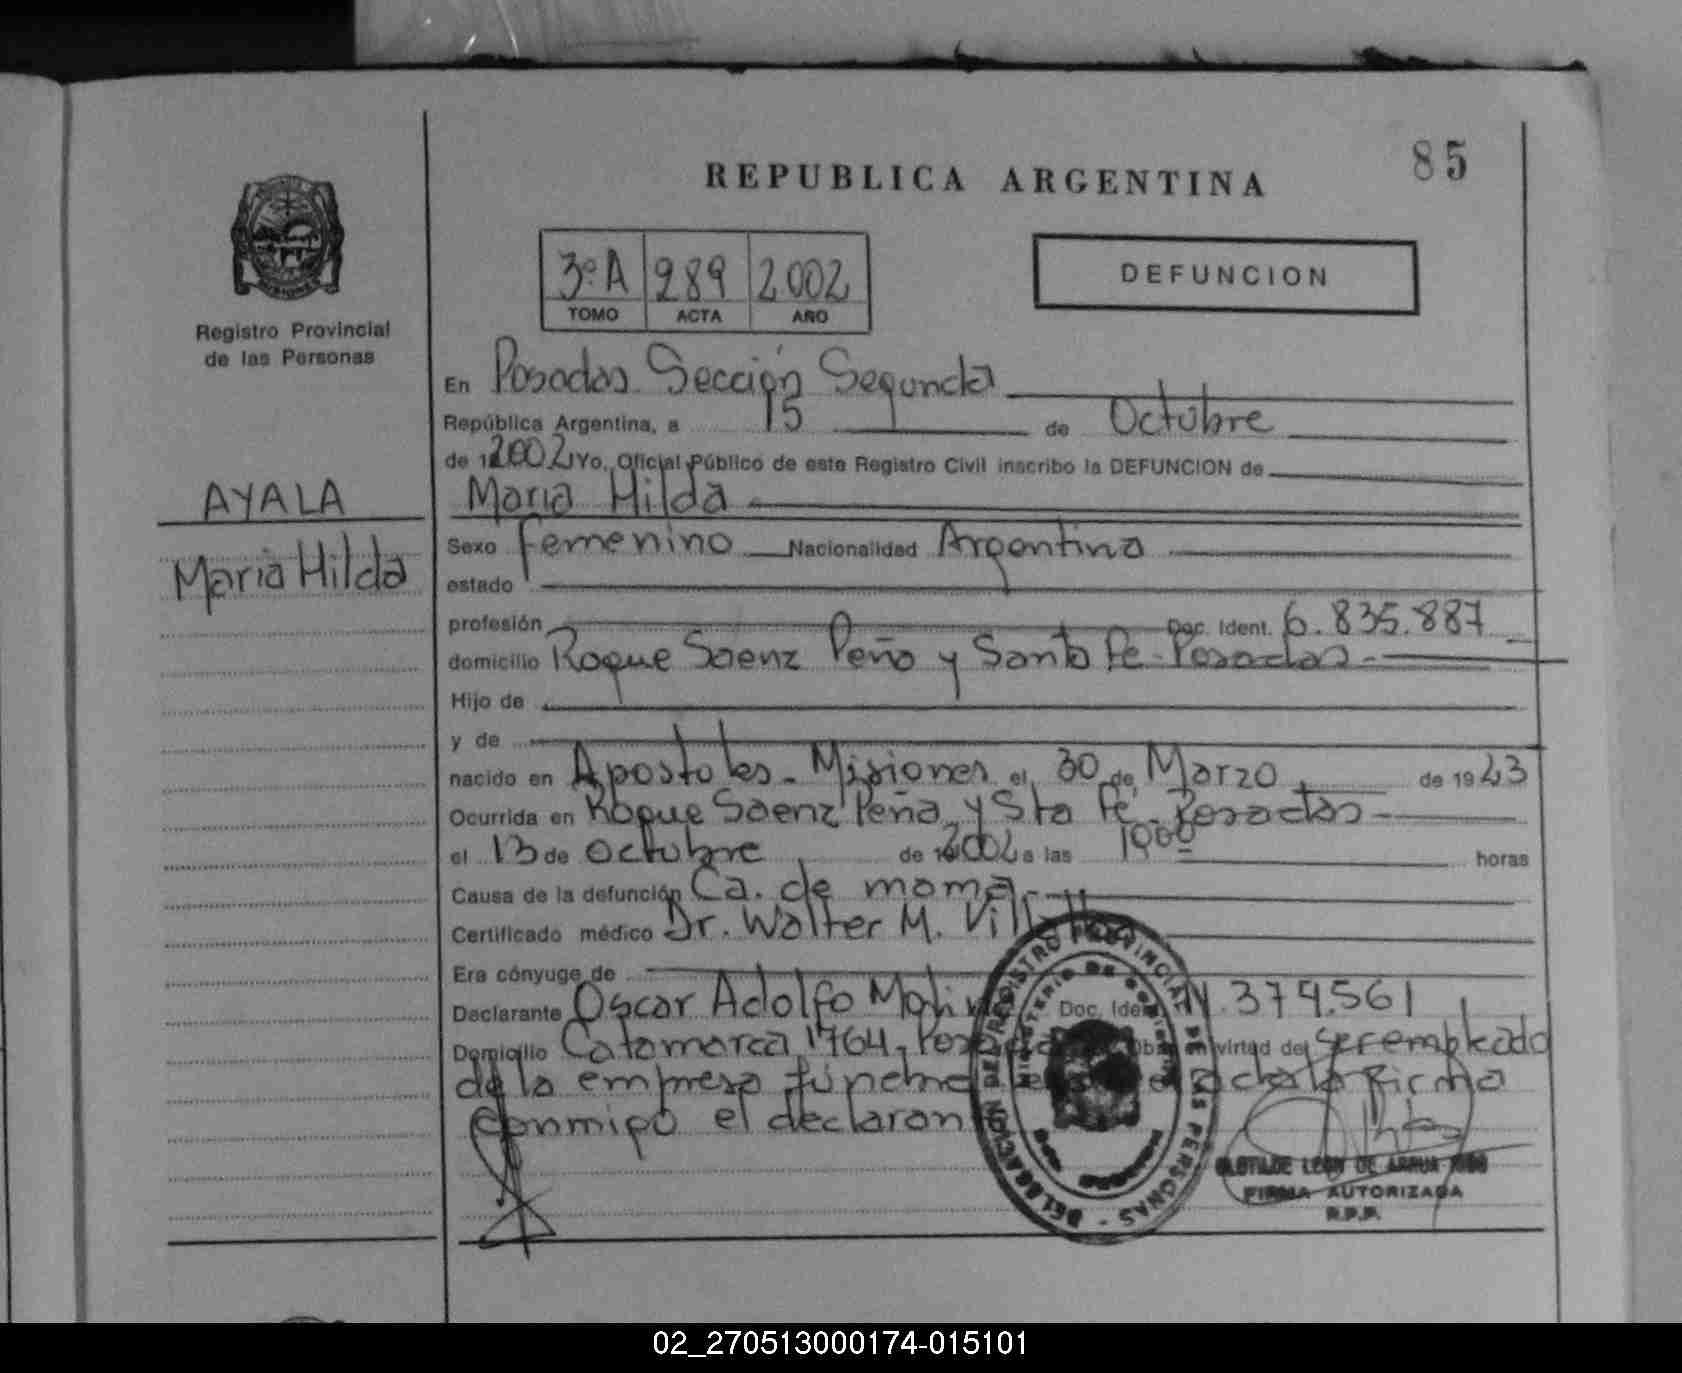 85
REPUBLICA ARGENTINA
3º A 289 2002
TOMO ACTA AÑO
DEFUNCION
Registro Provincial
de las Personas
En Posadas Sección Segunda
República Argentina, a 15 de Octubre
de 2002 Yo, Oficial Público de este Registro Civil inscribo la DEFUNCION de
AYALA
Maria Hilda
Maria Hilda
Sexo Femenino Nacionalidad Argentina
estado
profesión Doc. Ident. 6.835.887
domicilio Roque Saenz Peña y Santa Fe - Posadas -
Hijo de
y de
nacido en Apostoles - Misiones el 30 de Marzo de 1923
Ocurrida en Roque Saenz Peña y Sta Fe - Posadas -
el 13 de Octubre de 2002 a las 1000 horas
Causa de la defunción Ca. de mama -
Certificado médico Dr. Walter M.
Era cónyuge de
Declarante Oscar Adolfo Doc. Ident. .374.561
Domicilio Catamarca 1764, virtud de ser empleado
de la empresa fúnebre la firma
conmigo el
REGISTRO PROVINCIAL DE LAS PERSONAS - DELEGACION
MINISTERIO DE GOBIERNO
CLOTILDE LEON DE ARRUA
FIRMA AUTORIZADA
R.P.P.
02_270513000174-015101